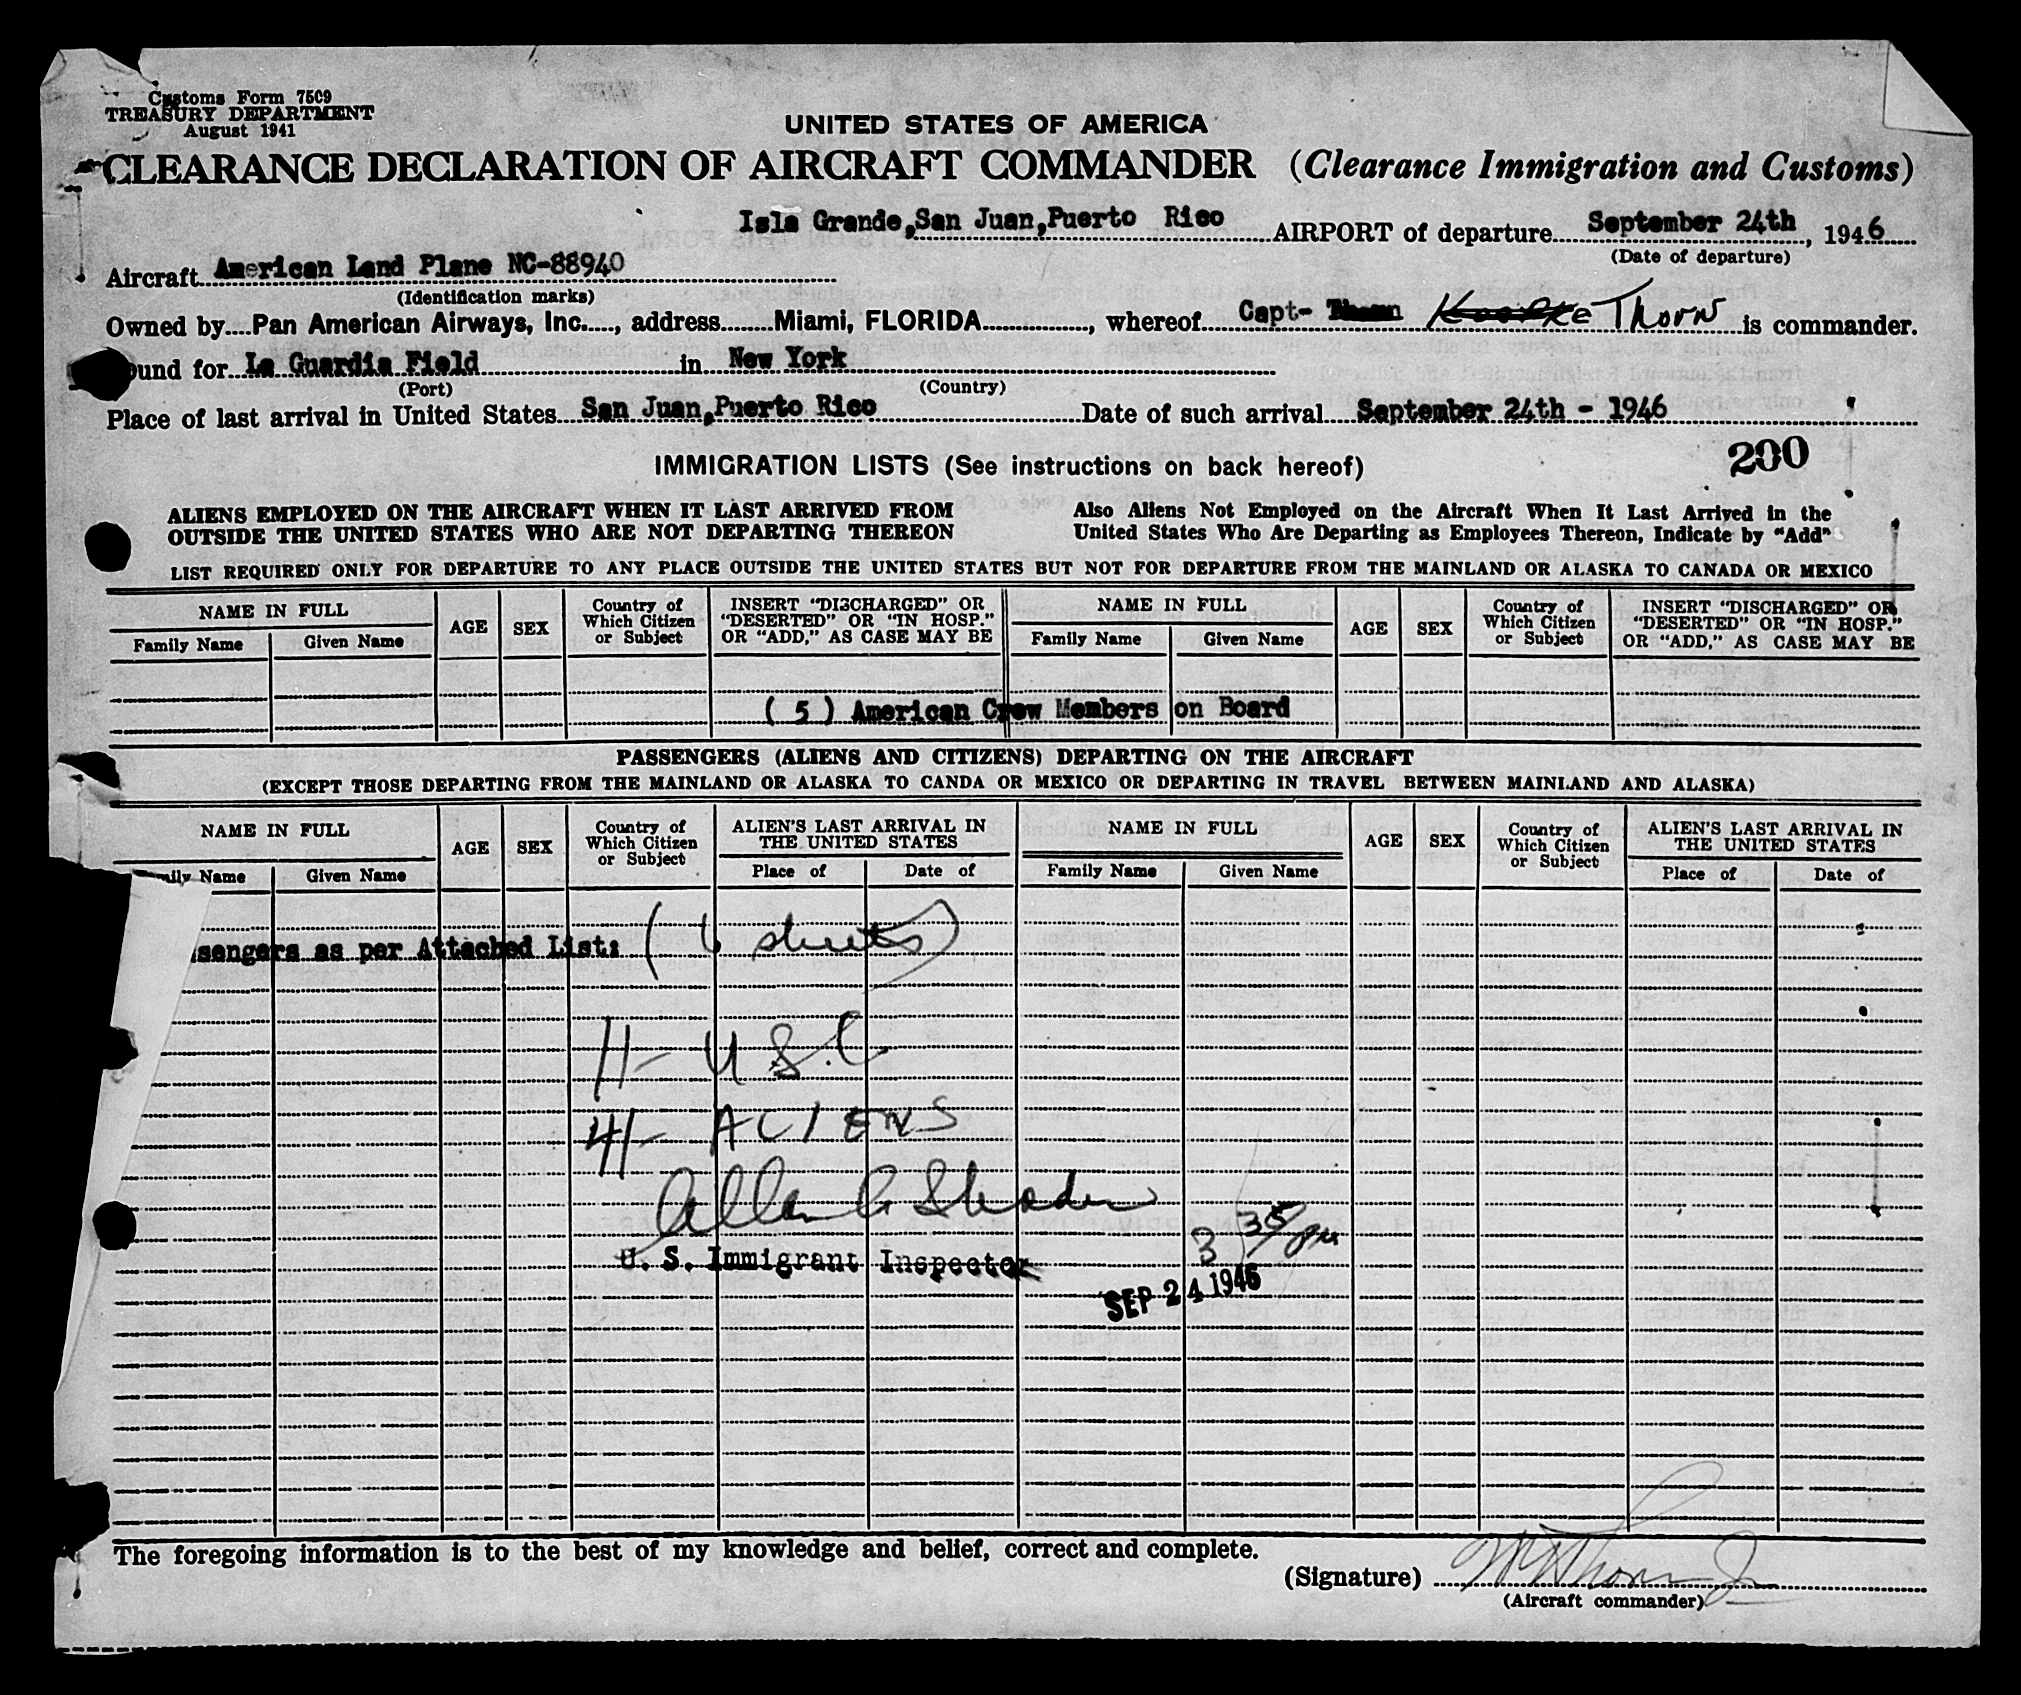 Customs Form 7509
TREASURY DEPARTMENT
August 1941
UNITED STATES OF AMERICA
CLEARANCE DECLARATION OF AIRCRAFT COMMANDER (Clearance Immigration and Customs)
Isla Grande, San Juan, Puerto Rico AIRPORT of departure September 24th, 1946
(Date of departure)
Aircraft American Land Plane NC-88940
(Identification marks)
Owned by Pan American Airways, Inc., address Miami, FLORIDA, whereof Capt- Thorn is commander.
ound for La Guardia Field in New York
(Port) (Country)
Place of last arrival in United States San Juan, Puerto Rico Date of such arrival September 24th - 1946
200
IMMIGRATION LISTS (See instructions on back hereof)
ALIENS EMPLOYED ON THE AIRCRAFT WHEN IT LAST ARRIVED FROM OUTSIDE THE UNITED STATES WHO ARE NOT DEPARTING THEREON
Also Aliens Not Employed on the Aircraft When It Last Arrived in the United States Who Are Departing as Employees Thereon, Indicate by "Add"
LIST REQUIRED ONLY FOR DEPARTURE TO ANY PLACE OUTSIDE THE UNITED STATES BUT NOT FOR DEPARTURE FROM THE MAINLAND OR ALASKA TO CANADA OR MEXICO
NAME IN FULL AGE SEX Country of Which Citizen or Subject INSERT "DISCHARGED" OR "DESERTED" OR "IN HOSP." OR "ADD," AS CASE MAY BE NAME IN FULL AGE SEX Country of Which Citizen or Subject INSERT "DISCHARGED" OR "DESERTED" OR "IN HOSP." OR "ADD," AS CASE MAY BE
Family Name Given Name Family Name Given Name
( 5 ) American Crew Members on Board
PASSENGERS (ALIENS AND CITIZENS) DEPARTING ON THE AIRCRAFT
(EXCEPT THOSE DEPARTING FROM THE MAINLAND OR ALASKA TO CANDA OR MEXICO OR DEPARTING IN TRAVEL BETWEEN MAINLAND AND ALASKA)
NAME IN FULL AGE SEX Country of Which Citizen or Subject ALIEN'S LAST ARRIVAL IN THE UNITED STATES NAME IN FULL AGE SEX Country of Which Citizen or Subject ALIEN'S LAST ARRIVAL IN THE UNITED STATES
Name Given Name Place of Date of Family Name Given Name Place of Date of
sengers as per Attached List: (6 sheets)
11- U.S.C
41- ALIENS
U. S. Immigrant Inspector
3 35/pm
SEP 24 1946
The foregoing information is to the best of my knowledge and belief, correct and complete.
(Signature)
(Aircraft commander)